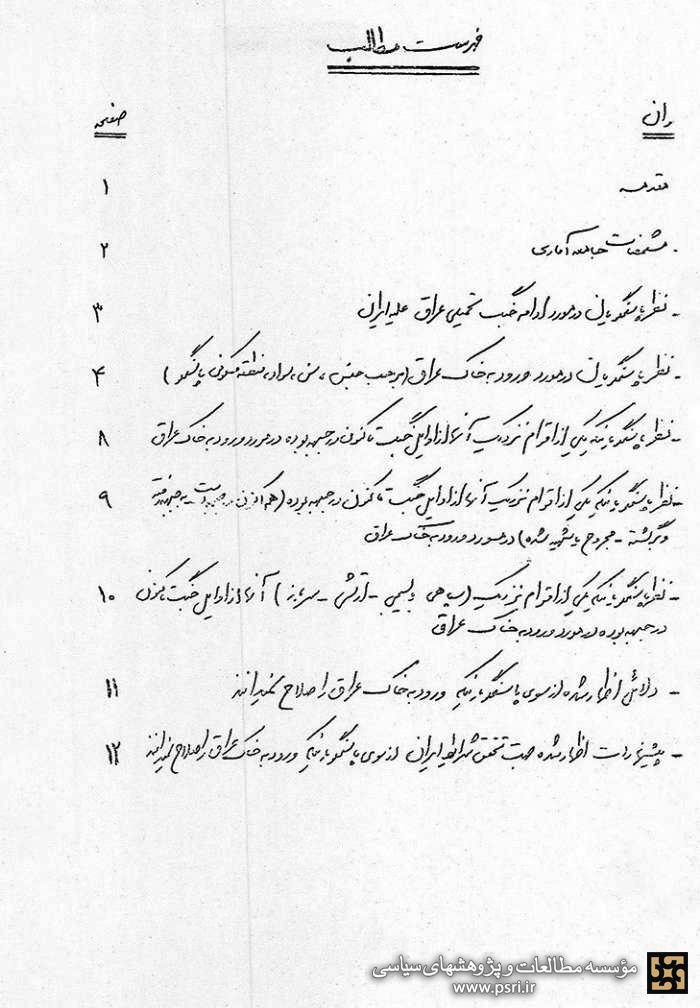 فهرست مطالب
وان صفحه
مقدمه ۱
- مشخصات جامعه آماری ۲
- نظر پاسخگویان در مورد ادامه جنگ تحمیلی عراق علیه ایران ۳
- نظر پاسخگویان در مورد ورود به خاک عراق (بر حسب جنس، سن، سواد، منطقه مسکونی پاسخگو) ۴
- نظر پاسخگویانیکه یکی از اقوام نزدیک آنها از اوایل جنگ تاکنون در جبهه بوده در مورد ورود به خاک عراق ۸
- نظر پاسخگویانیکه یکی از اقوام نزدیک آنها از اوایل جنگ تاکنون در جبهه بوده (هم اکنون در جبهه است - به جبهه رفته ۹
و برگشته - مجروح یا شهید شده) در مورد ورود به خاک عراق
- نظر پاسخگویانیکه یکی از اقوام نزدیک (سپاهی - بسیجی - ارتشی - سرباز) آنها از اوایل جنگ تاکنون ۱۰
در جبهه بوده در مورد ورود به خاک عراق
- دلائل اظهار شده از سوی پاسخگویانیکه ورود به خاک عراق را صلاح نمیدانند ۱۱
- پیشنهادات اظهار شده جهت تحقق شرایط ایران از سوی پاسخگویانیکه ورود به خاک عراق را صلاح نمیدانند ۱۲
مؤسسه مطالعات و پژوهشهای سیاسی
www.psri.ir